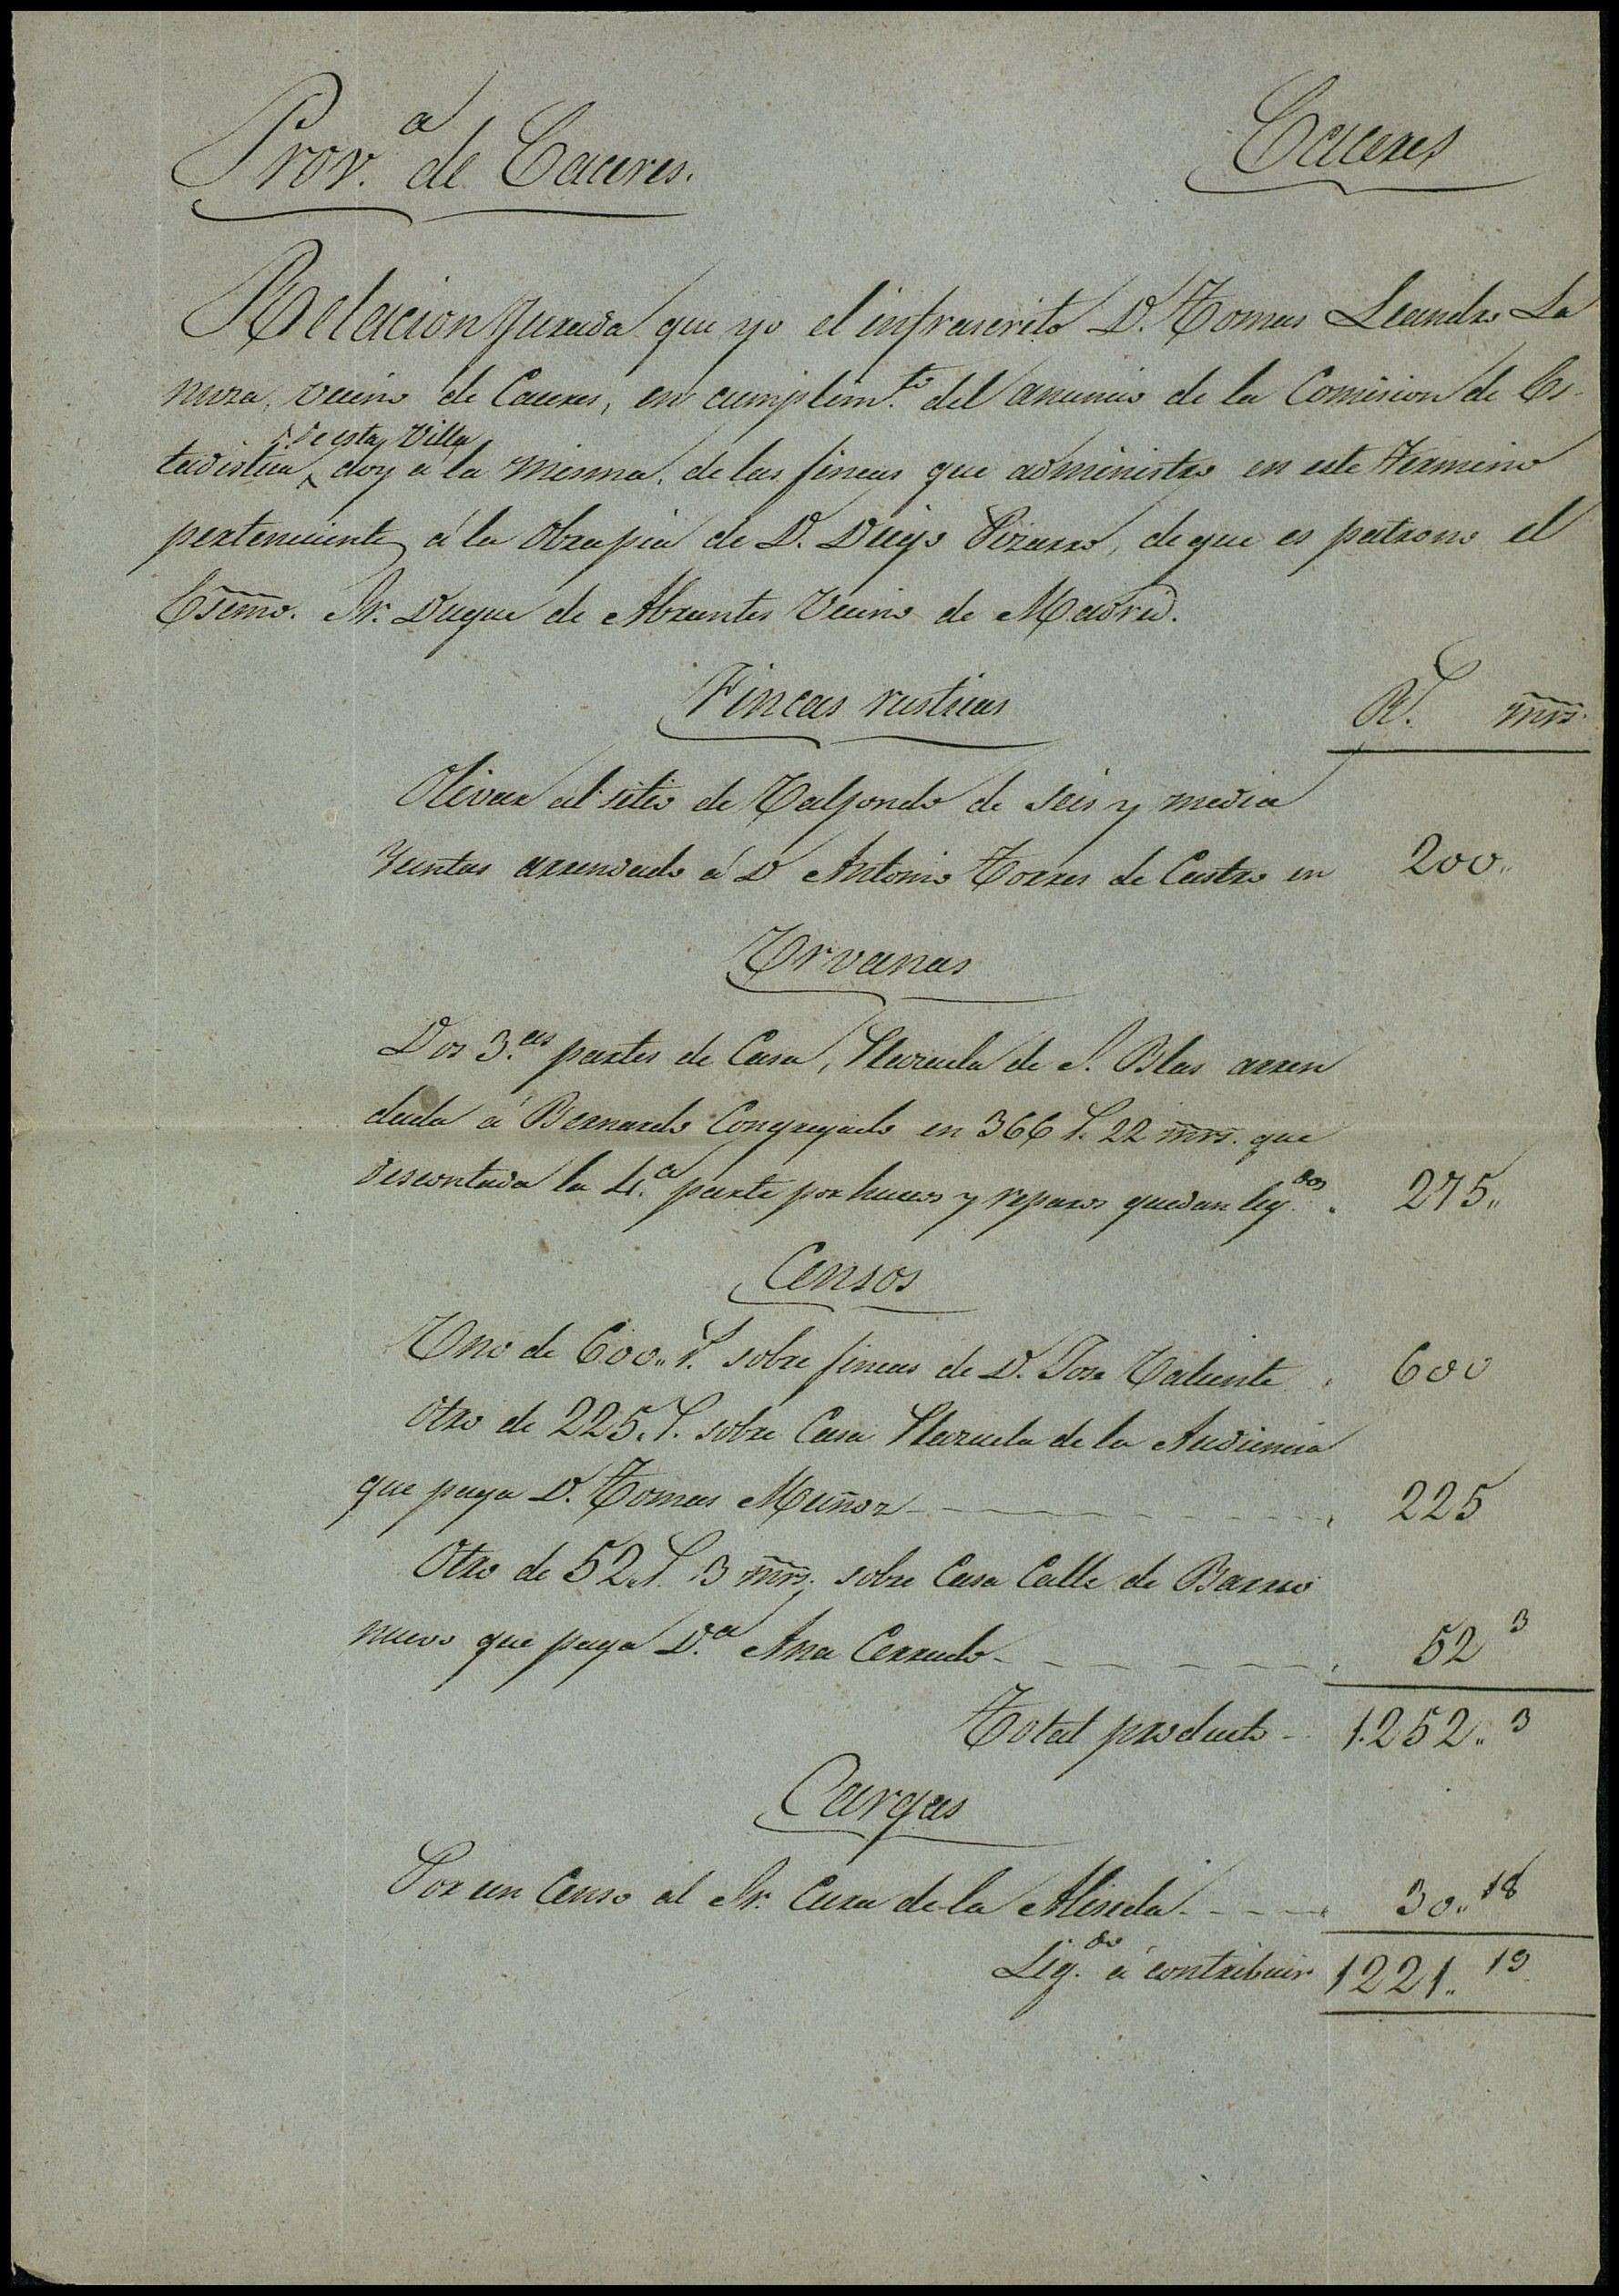 Prov.ª de Caceres.
Caceres
Relacion Jurada que yo el infrascrito D. Tomas Leandro La
mora, vecino de Caceres, en cumplim.to del anuncio de la Comision de Es-
de esta Villa
tadistica doy a la misma, de las fincas que administro en este Termino
perteneciente á la Obrapia de D. Diego Pizarro, de que es patrono el
Esmo. Sr. Duque de Abrantes Vecino de Madrid.
Fincas rusticas
Rs. mrs.
Olivar al sitio de Valfondo de seis y media
Yuntas arrendado á D Antonio Torres de Castro en 200,,
Urvanas
Dos 3.as partes de Casa, Plazuela de S. Blas arren
dada á Bernardo Congregado en 366 r. 22 mrs. que
descontada la 4.ª parte por huecos y reparos quedan liq.dos 275,,
Censos
Uno de 600,, r. sobre fincas de D. Jose Valiente 600
Otro de 225,, r. sobre Casa Plazuela de la Audiencia
que paga D. Tomas Muñoz 225
Otro de 52 r. 3 mrs. sobre Casa Calle de Barrio
nuevo que paga D.ª Ana Cerrudo 52 3
Total producto 1.252,, 3
Cargas
Por un Censo al Sr. Cura de la Aliseda 30,, 18
Liq.do á contribuir 1221,, 19